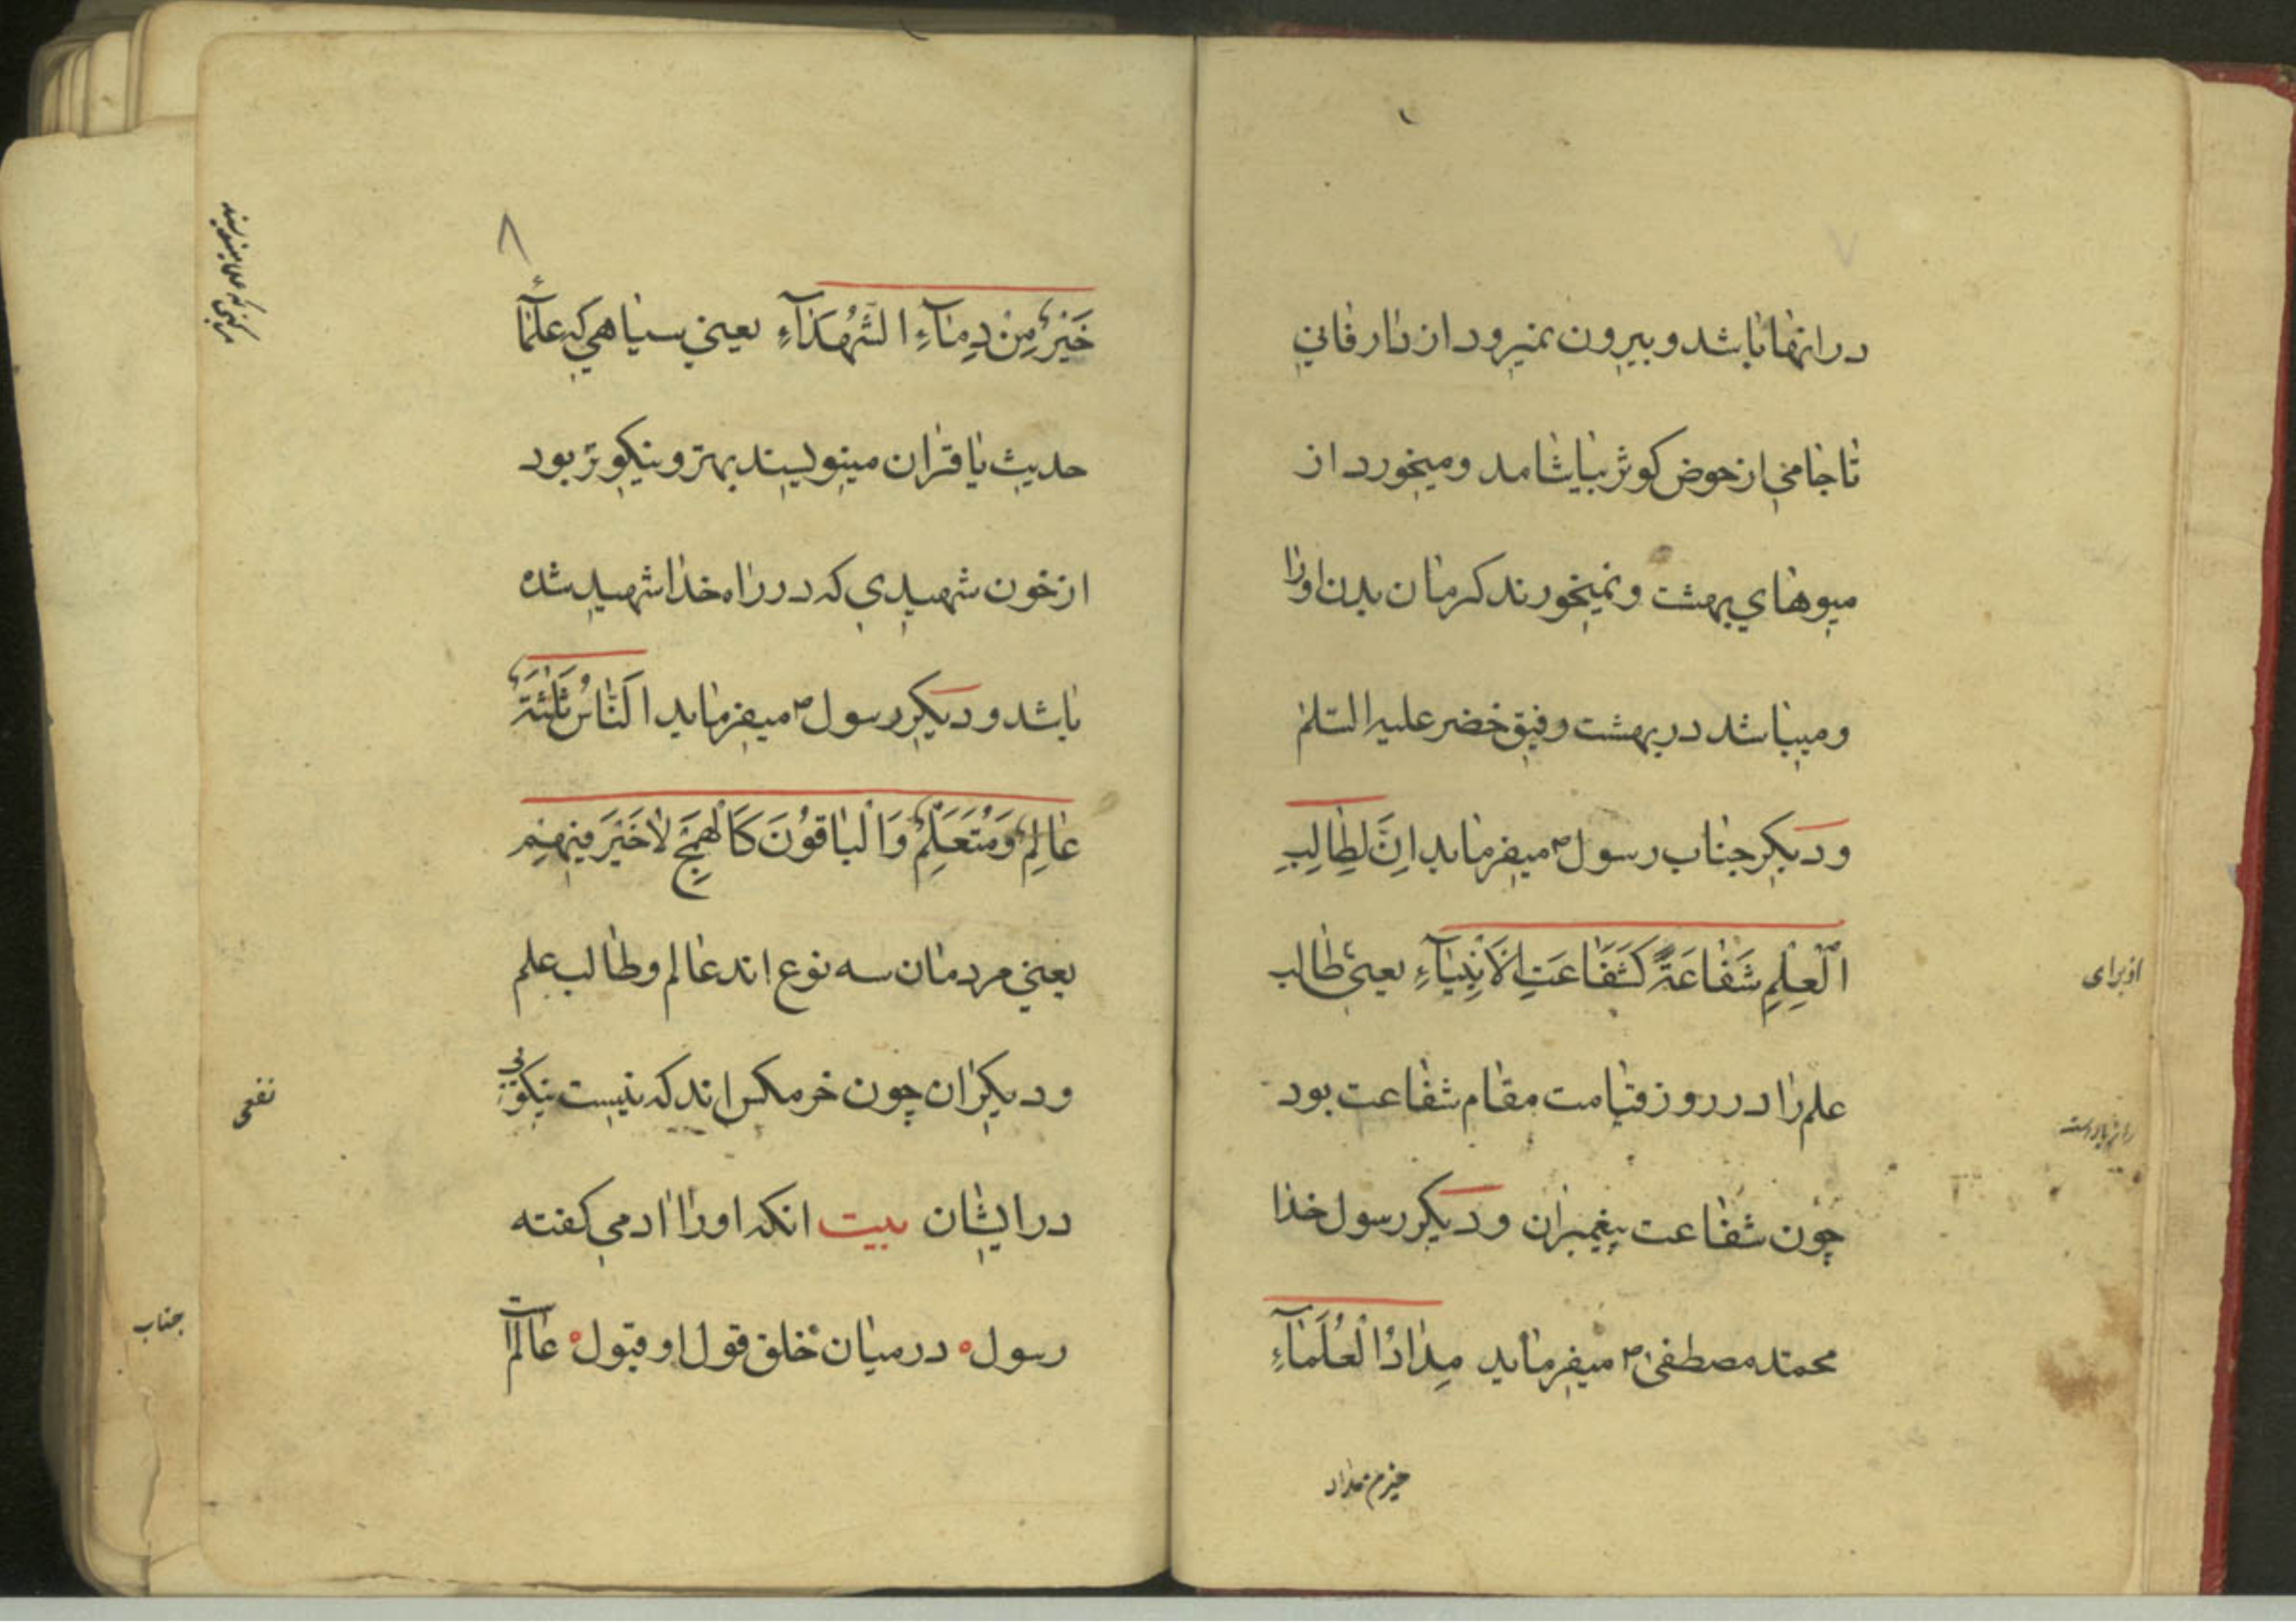 ٧
در انها باشد و بیرون نمیرود از دار فانی
تا جامی از حوض کوثر بیاشامد و میخورد از
میوهای بهشت و نمیخورند کرمان بدن او را
و میباشد در بهشت رفیق خضر علیه السّلم
و دیکر جناب رسول ص میفرماید اِنَّ لِطٰالِبِ
الْعِلْمِ شَفٰاعَةً کَشَفٰاعَتِ الْاَنْبِیٰآءِ یعنی طالب
از برای
علم را در روز قیامت مقام شفاعت بود
چون شفاعت پیغمبران و دیکر رسول خدا
محمّد مصطفی ص میفرماید مِدٰادُ الْعُلَمٰآءِ
خیر من
٨
خَیْرٌ مِنْ دِمٰآءِ الشُّهَدٰآءِ یعنی سیاهی که علمآء
حدیث یا قران مینویسند بهتر و نیکوتر بود
از خون شهیدی که در راه خدا شهید شده
باشد و دیکر رسول ص میفرماید اَلنّٰاسُ ثَلٰثَةٌ
عٰالِمٌ وَ مُتَعَلِّمٌ وَ الْبٰاقُوْنَ کَالْهَمَجِ لٰا خَیْرَ فِیْهِمْ
یعنی مردمان سه نوع اند عالم و طالب علم
و دیکران چون خرمکس اند که نیست نیکوئی
نفعی
در ایشان بیت انکه او را ادمی کفته
رسول ه در میان خلق قول او قبول ه عالم است
جناب